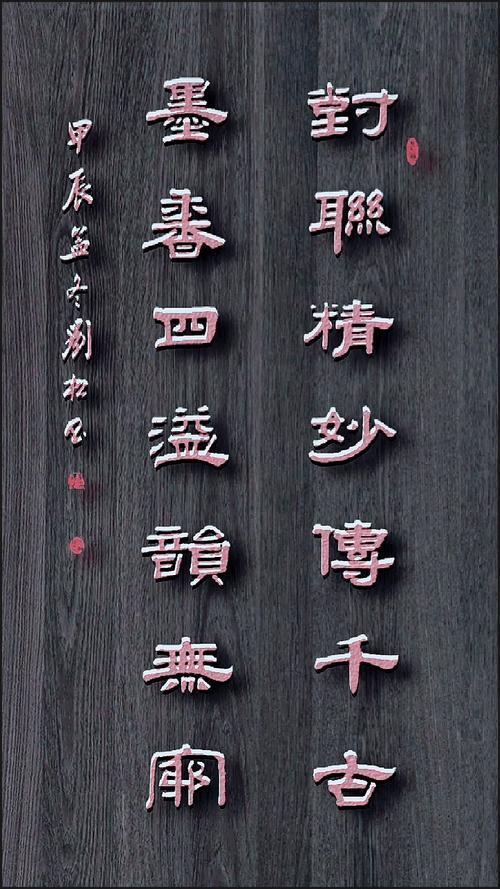 對聯精妙傳千古
墨香四溢韻無窮
甲辰孟冬劉松